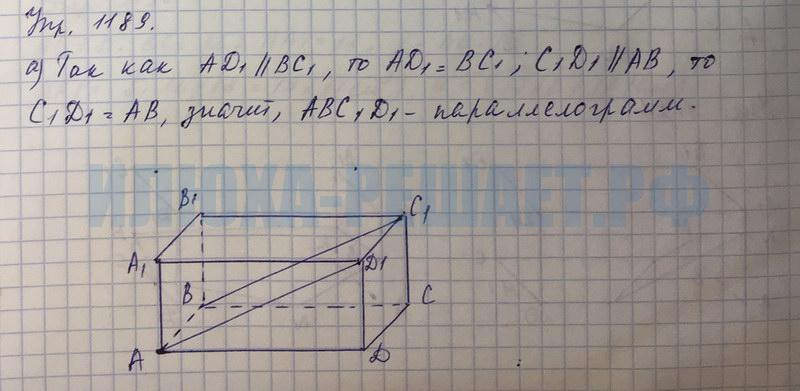 Упр. 1189.
а) Так как AD₁ || BC₁, то AD₁ = BC₁; C₁D₁ || AB, то
C₁D₁ = AB, значит, ABC₁D₁ - параллелограмм.
ИЛЮХА-РЕШАЕТ.РФ
B₁
C₁
A₁
D₁
B
C
A
D